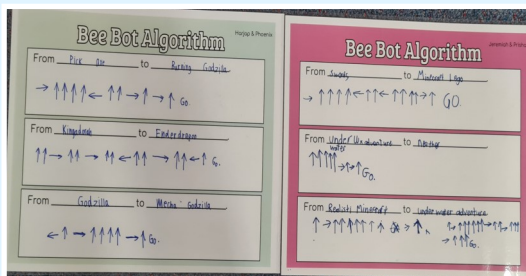 Bee Bot Algorithm
Harjap & Phoenix
From Pick axe to Burning Godzilla
→ ↑ ↑ ↑ ↑ ← ↑ ↑ → ↑ → ↑ Go.
From to Enderdragon
↑ ↑ → ↑ ↑ → ↑ ↑ ← ↑ ↑ → ↑ ↑ ← ↑ Go.
From Godzilla to Mecha Godzilla
← ↑ → ↑ ↑ ↑ ↑ → ↑ Go.
Bee Bot Algorithm
Jeremiah &
From Swords to Minecraft Lego
→ ↑ ↑ ↑ ↑ ← ↑ ↑ ← ↑ ↑ ↑ ↑ → ↑ GO.
From Under water adventure to Nether
Go.
From Minecraft to under water adventure
Go.